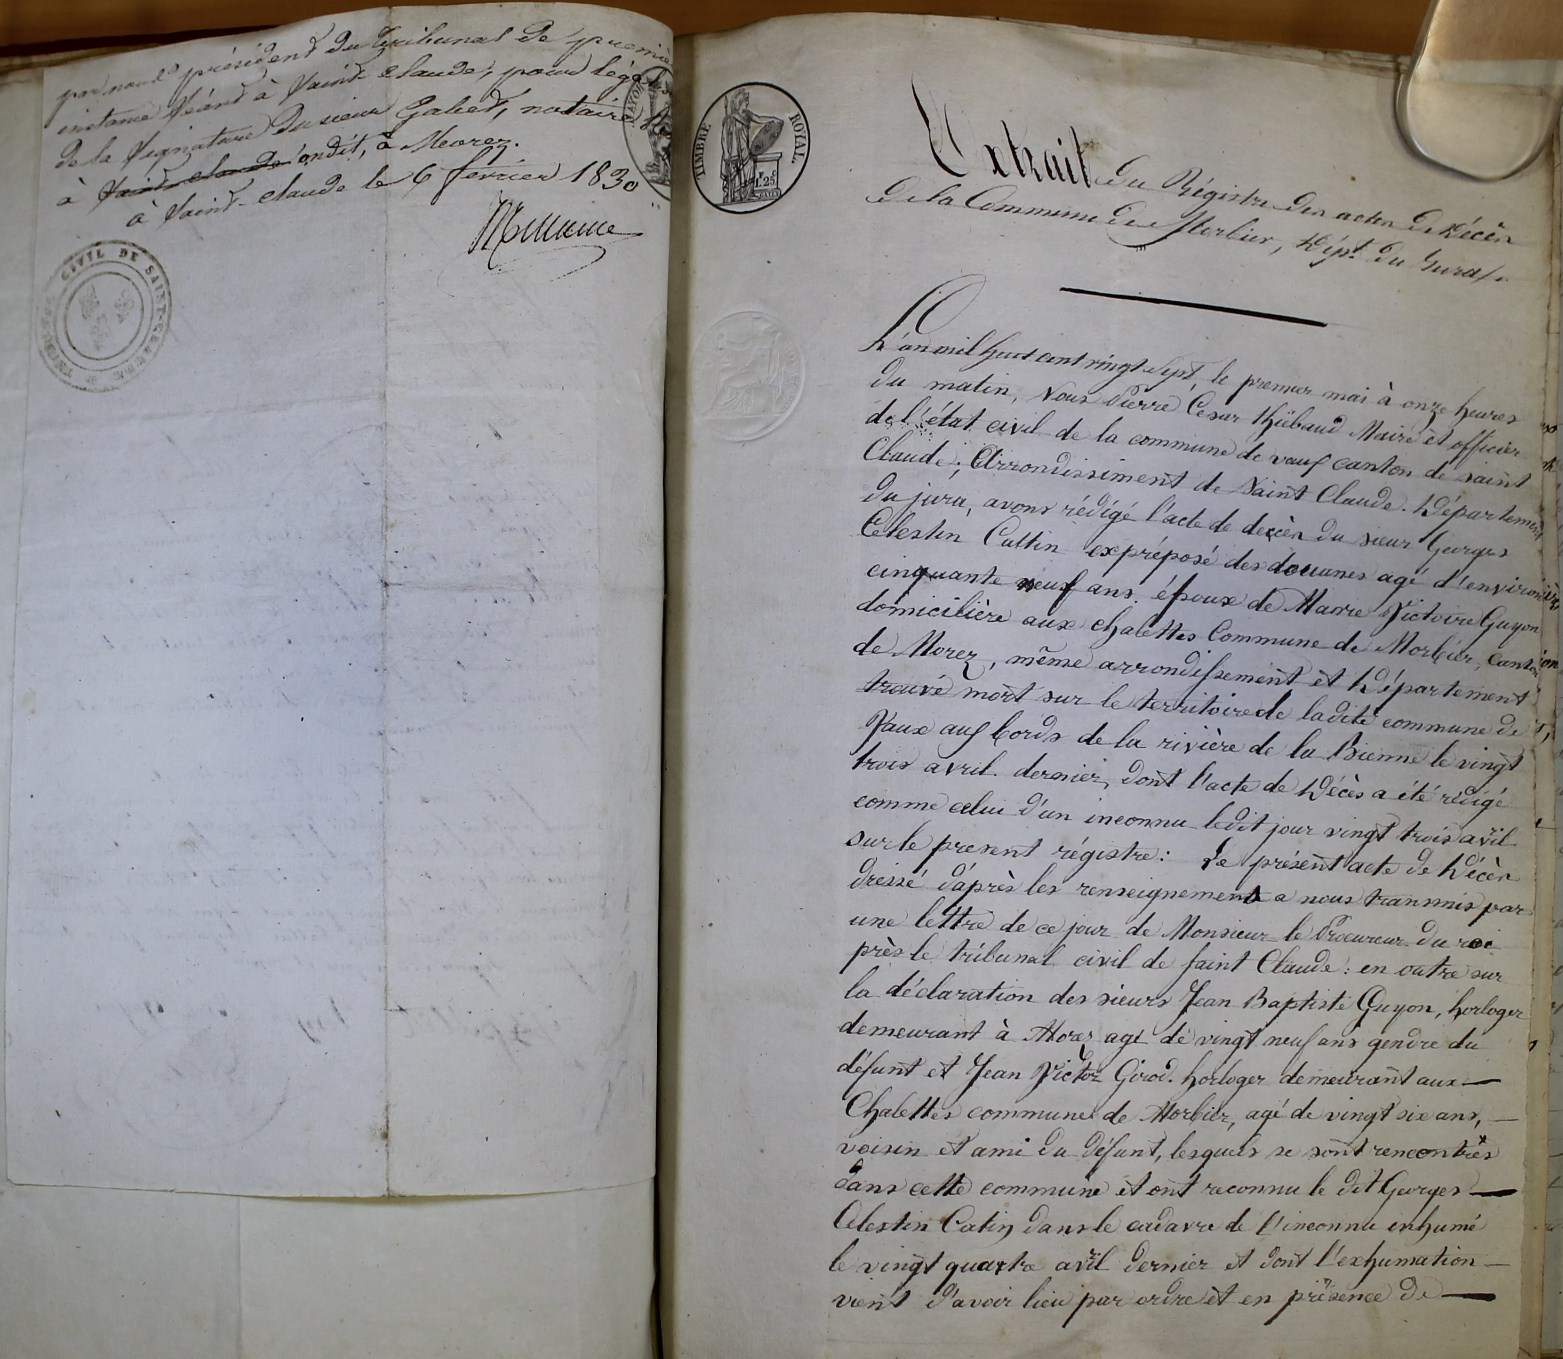 par nous président du Tribunal de premiè
instance séant à Saint Claude, pour léga
de la signature du sieur notaire
à Saint-claude ondit, à Morez.
à Saint-claude le 6 février 1830
CIVIL DE SAINT-CLAUDE
TIMBRE ROYAL
1.25
Extrait du Régistre des actes de Décès
de la Commune de Morbier, Dépt. du Jura
L'an mil huit cent vingt sept, le premier mai à onze heures
du matin, Nous Pierre César Thiébaud Maire et officier
de l'état civil de la commune de vaux canton de saint
Claude; Arrondissiment de Saint Claude. Département
du jura, avons rédigé l'acte de decès du sieur Georges
Célestin Cattin expréposé des douanes agé d'environ
cinquante neuf ans. époux de Marie Victoire Guyon
domicilière aux chalettes Commune de Morbier, Canton
de Morez, même arrondissement et Département
trouvé mort sur le territoire de ladite commune de
Vaux aux bords de la rivière de la Bienne le vingt
trois avril dernier, dont l'acte de Décès a été rédigé
comme celui d'un inconnu ledit jour vingt trois avril
sur le present régistre: Le présent acte de Décès
dressé d'après les renseignements a nous transmis par
une lettre de ce jour de Monsieur le Procureur du roi
près le tribunal civil de saint Claude: en outre sur
la déclaration des sieurs Jean Baptiste Guyon, horloger
demeurant à Morez agé de vingt neuf ans gendre du
défunt et Jean Victor Girod. horloger demeurant aux
Chalettes commune de Morbier, agé de vingt six ans,
voisin et ami du défunt, lesquels se sont rencontrés
dans cette commune et ont reconnu le dit Georges
Célestin Catin dans le cadavre de l'inconnu inhumé
le vingt quatre avril dernier et dont l'exhumation
vient d'avoir lieu par ordre et en présence de